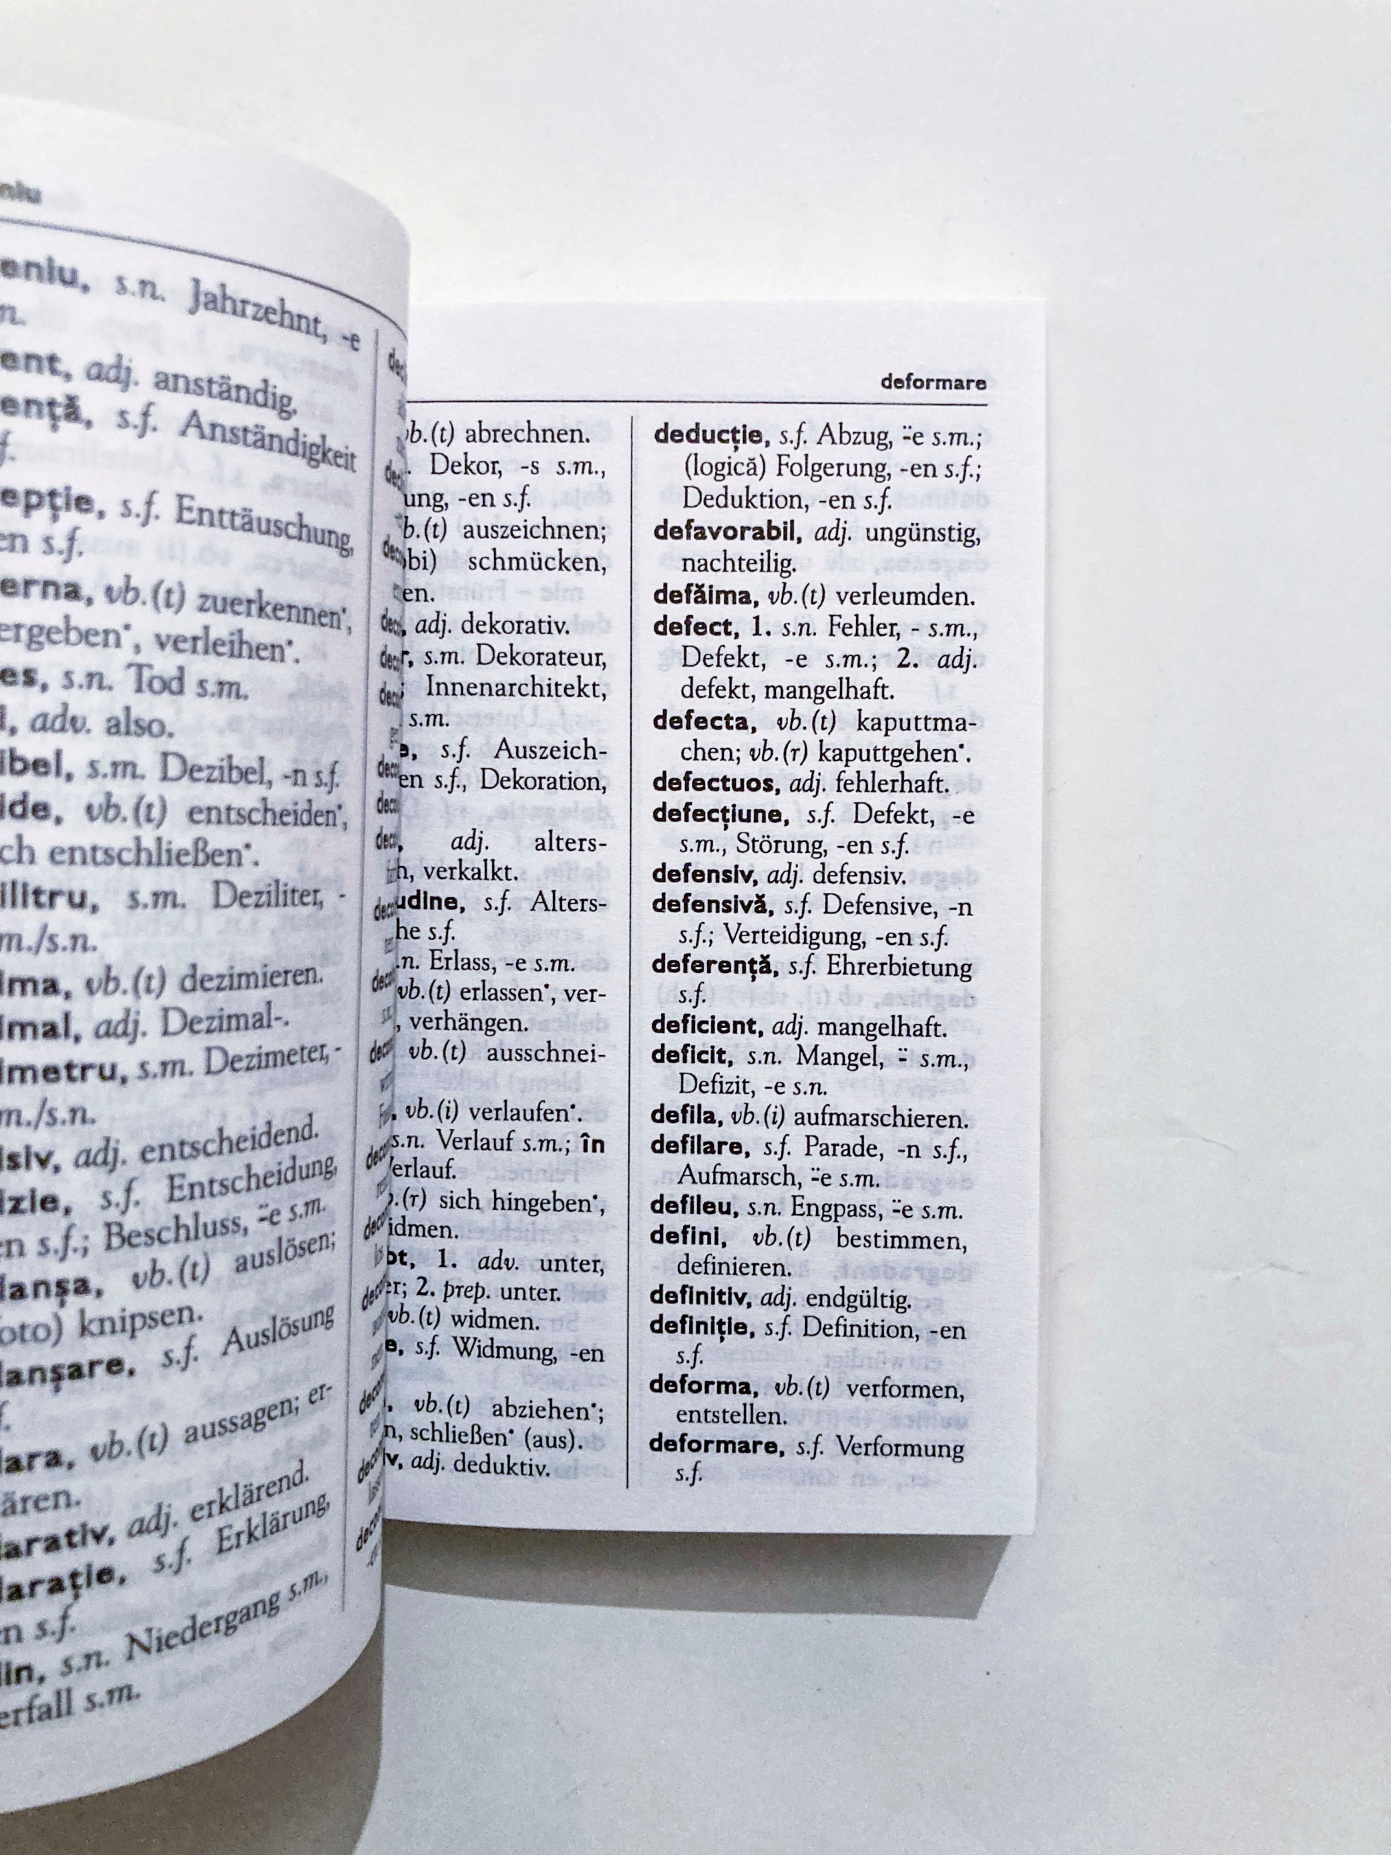 eniu, s.n. Jahrzehnt, -e
n.
ent, adj. anständig.
ență, s.f. Anständigkeit
f.
epție, s.f. Enttäuschung,
en s.f.
erna, vb.(t) zuerkennen*,
ergeben*, verleihen*.
es, s.n. Tod s.m.
i, adv. also.
ibel, s.m. Dezibel, -n s.f.
ide, vb.(t) entscheiden*,
ch entschließen*.
ilitru, s.m. Deziliter, -
m./s.n.
ima, vb.(t) dezimieren.
imal, adj. Dezimal-.
imetru, s.m. Dezimeter, -
m./s.n.
isiv, adj. entscheidend.
izie, s.f. Entscheidung,
en s.f.; Beschluss, ¨-e s.m.
lanșa, vb.(t) auslösen;
oto) knipsen.
lanșare, s.f. Auslösung
f.
lara, vb.(t) aussagen; er-
ären.
larativ, adj. erklärend.
larație, s.f. Erklärung,
n s.f.
lin, s.n. Niedergang s.m.,
erfall s.m.
deformare
vb.(t) abrechnen.
Dekor, -s s.m.,
ung, -en s.f.
b.(t) auszeichnen;
obi) schmücken,
en.
adj. dekorativ.
r, s.m. Dekorateur,
Innenarchitekt,
s.m.
e, s.f. Auszeich-
en s.f., Dekoration,
adj. alters-
h, verkalkt.
udine, s.f. Alters-
he s.f.
.n. Erlass, -e s.m.
vb.(t) erlassen*, ver-
, verhängen.
vb.(t) ausschnei-
, vb.(i) verlaufen*.
s.n. Verlauf s.m.; în
Verlauf.
b.(r) sich hingeben*,
idmen.
bt, 1. adv. unter,
er; 2. prep. unter.
vb.(t) widmen.
e, s.f. Widmung, -en
, vb.(t) abziehen*;
n, schließen* (aus).
iv, adj. deduktiv.
deducție, s.f. Abzug, ¨-e s.m.;
(logică) Folgerung, -en s.f.;
Deduktion, -en s.f.
defavorabil, adj. ungünstig,
nachteilig.
defăima, vb.(t) verleumden.
defect, 1. s.n. Fehler, - s.m.,
Defekt, -e s.m.; 2. adj.
defekt, mangelhaft.
defecta, vb.(t) kaputtma-
chen; vb.(r) kaputtgehen*.
defectuos, adj. fehlerhaft.
defecțiune, s.f. Defekt, -e
s.m., Störung, -en s.f.
defensiv, adj. defensiv.
defensivă, s.f. Defensive, -n
s.f.; Verteidigung, -en s.f.
deferență, s.f. Ehrerbietung
s.f.
deficient, adj. mangelhaft.
deficit, s.n. Mangel, ¨- s.m.,
Defizit, -e s.n.
defila, vb.(i) aufmarschieren.
defilare, s.f. Parade, -n s.f.,
Aufmarsch, ¨-e s.m.
defileu, s.n. Engpass, ¨-e s.m.
defini, vb.(t) bestimmen,
definieren.
definitiv, adj. endgültig.
definiție, s.f. Definition, -en
s.f.
deforma, vb.(t) verformen,
entstellen.
deformare, s.f. Verformung
s.f.